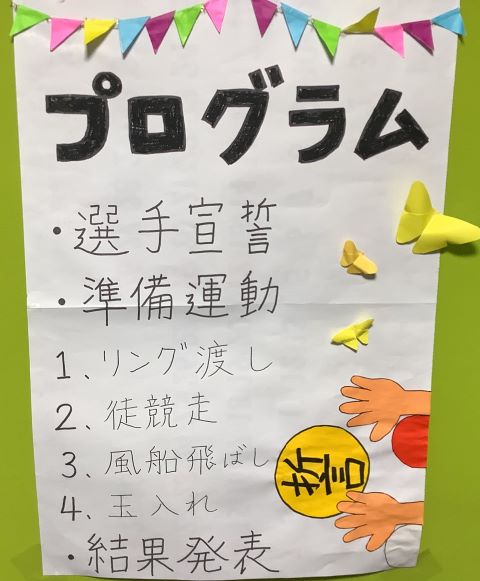 プログラム
・選手宣誓
・準備運動
1、リング渡し
2、徒競走
3、風船飛ばし
4、玉入れ
・結果発表
誓